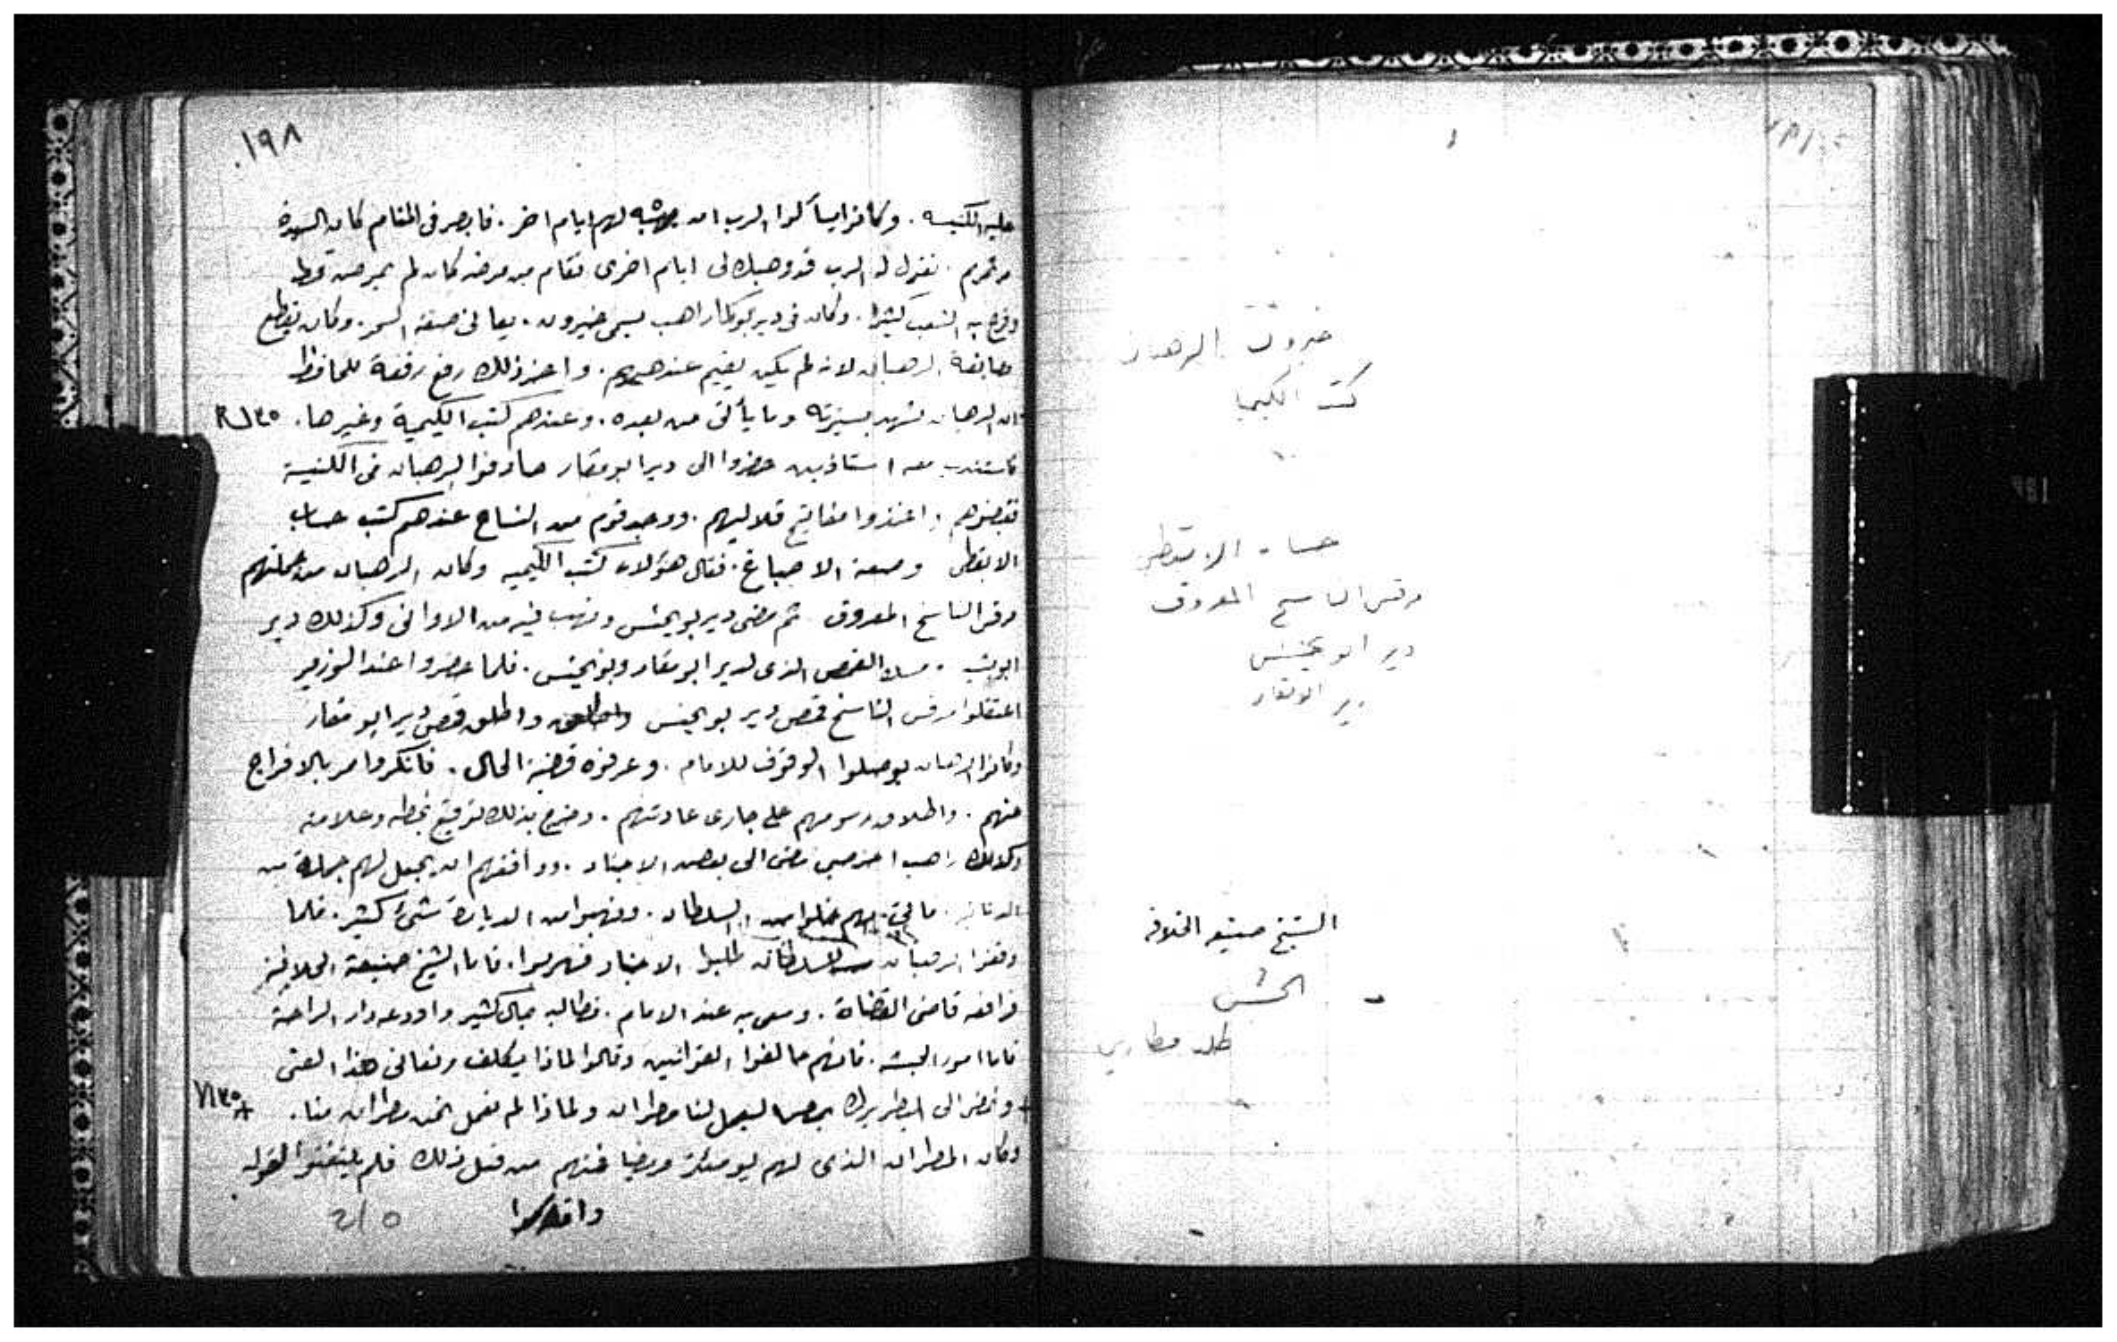 ١٩٨
عليه الكنيسه . وكانوا يسألوا الرب ان يهبه لهم ايام اخر . فابصر في المنام كأن السيدة
مرتمريم . تقول له الرب قد وهبك لى ايام اخرى فقام من مرضه كان لم يمرض قط
وفرح به الشعب كثيرا . وكان في دير بو كما راهب يسمى خيرون . يعانى صنعة السحر . وكان يقطع
الرهبان لانه لم يكن يقيم عندهم . واخر ذلك رفع رقعة للحافظ
ان الرهبان تشهد بسيرته وما يأتى من بعده . وعندهم كتب الكيمية وغيرها .
فاستندب معه استاذين حضروا الى دير ابو مقار صادفوا الرهبان في الكنيسة
فقبضوهم واخذوا مفاتيح قلاليهم . ووجد قوم من النساخ عندهم كتب حساب
الابقطى وصنعة الاصباغ . فقال هؤلاء كتب الكيميه وكان الرهبان من جملتهم
مرقس الناسخ المعروف ثم مضى دير بو يحنس ونهب فيه من الاوانى وكذلك دير
القمص الذى لدير ابو مقار وبو يحنس . فلما حضروا عند الوزير
اعتقلوا مرقس الناسخ قمص دير بو يحنس واطلق قمص دير ابو مقار
وكانوا الرهبان يوصلوا الوقوف للامام . وعرفوه قضية الحال . فانكر وامر بالافراج
عنهم . واطلاق رسومهم على جارى عادتهم . وخرج بذلك توقيع بخطه وعلامته
وكذلك راهب اخر مضى الى بعض الاجناد . ووافقهم ان يجعل لهم جملة من
الدنانير من السلطان . ونهبوا من الديارة شئ كثير . فلما
وقفوا الرهبان للسلطان طلبوا الاجناد فهربوا . فاما الشيخ صنيعة الخلافة
فرافعه قاضى القضاة . وسعى به عند الامام . فطالبه بمال كثير واودعه دار الراحة
فاما امور الحبشه . فانهم خالفوا القوانين وقالوا لماذا نتكلف ونعانى هذا العنى
ونمضى الى البطريرك بمصر ليعمل لنا مطران ولماذا لم نعمل نحن مطران منا .
وكان المطران الذى لهم يومئذ مريضا عندهم من قبل ذلك فلم يلتفتوا لقوله
٢١٥
خيرون الراهب
كتب الكيميا
حساب الابقطى
مرقس الناسخ المعروف
دير ابو يحنس
دير ابو مقار
الشيخ صنيعة الخلافه
الحبش
طلب مطارين